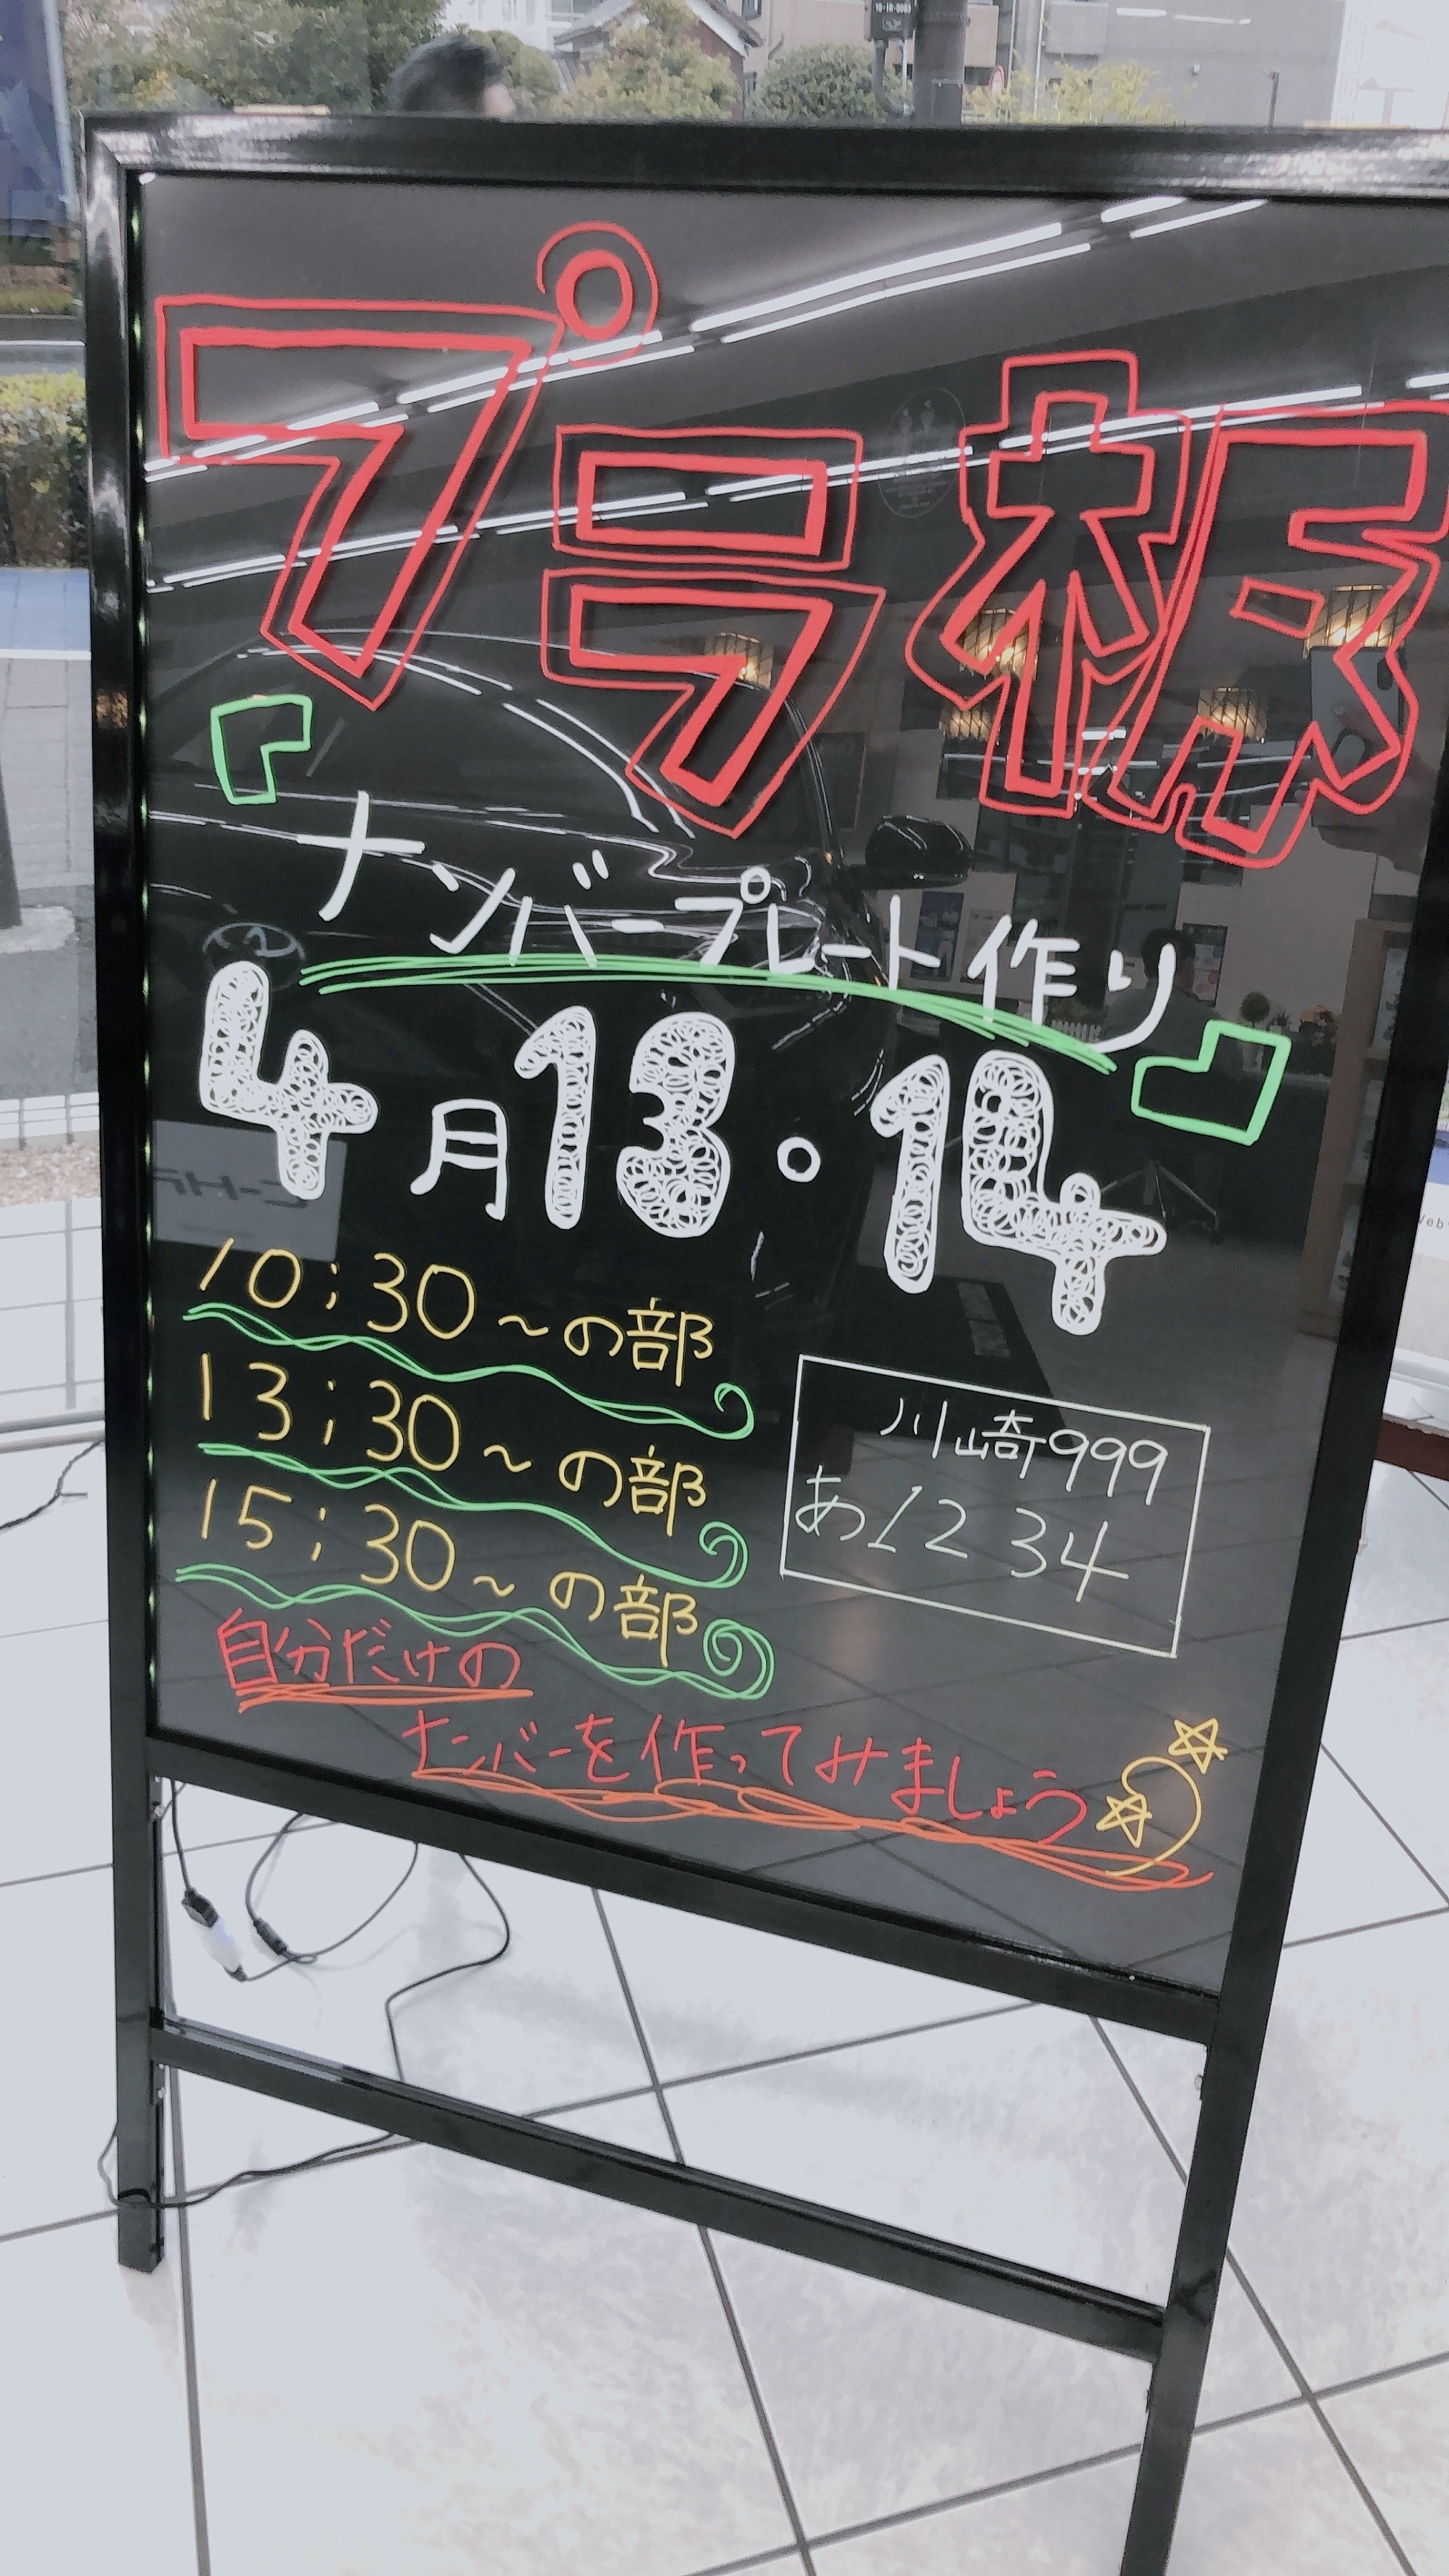 プラ板
『ナンバープレート作り』
4月13・14
10:30～の部
13:30～の部
15:30～の部
川崎999
あ1234
自分だけの
ナンバーを作ってみましょう
C-HR